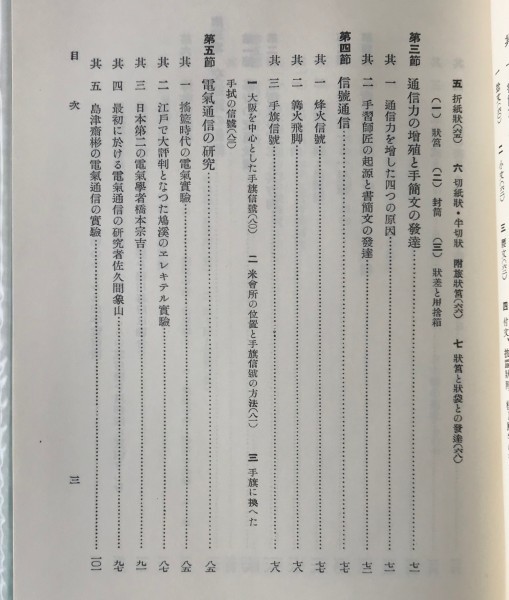 五 折紙狀(六五) 六 切紙狀・半切狀 附旅狀筥(六六) 七 狀筥と狀袋との發達(六八)
(一) 狀筥 (二) 封筒 (三) 狀差と用捨箱
第三節 通信力の增殖と手簡文の發達……七一
其一 通信力を增した四つの原因……七一
其二 手習師匠の起源と書簡文の發達……七二
第四節 信號通信……七七
其一 烽火信號……七七
其二 篝火飛脚……七八
其三 手旗信號……七八
一 大阪を中心とした手旗信號(八〇) 二 米會所の位置と手旗信號の方法(八二) 三 手旗に換へた
手拭の信號(八三)
第五節 電氣通信の研究……八五
其一 搖籃時代の電氣實驗……八五
其二 江戸で大評判となつた鳩溪のエレキテル實驗……八七
其三 日本第二の電氣學者橋本宗吉……九一
其四 最初に於ける電氣通信の研究者佐久間象山……九七
其五 島津齋彬の電氣通信の實驗……一〇一
目次
三